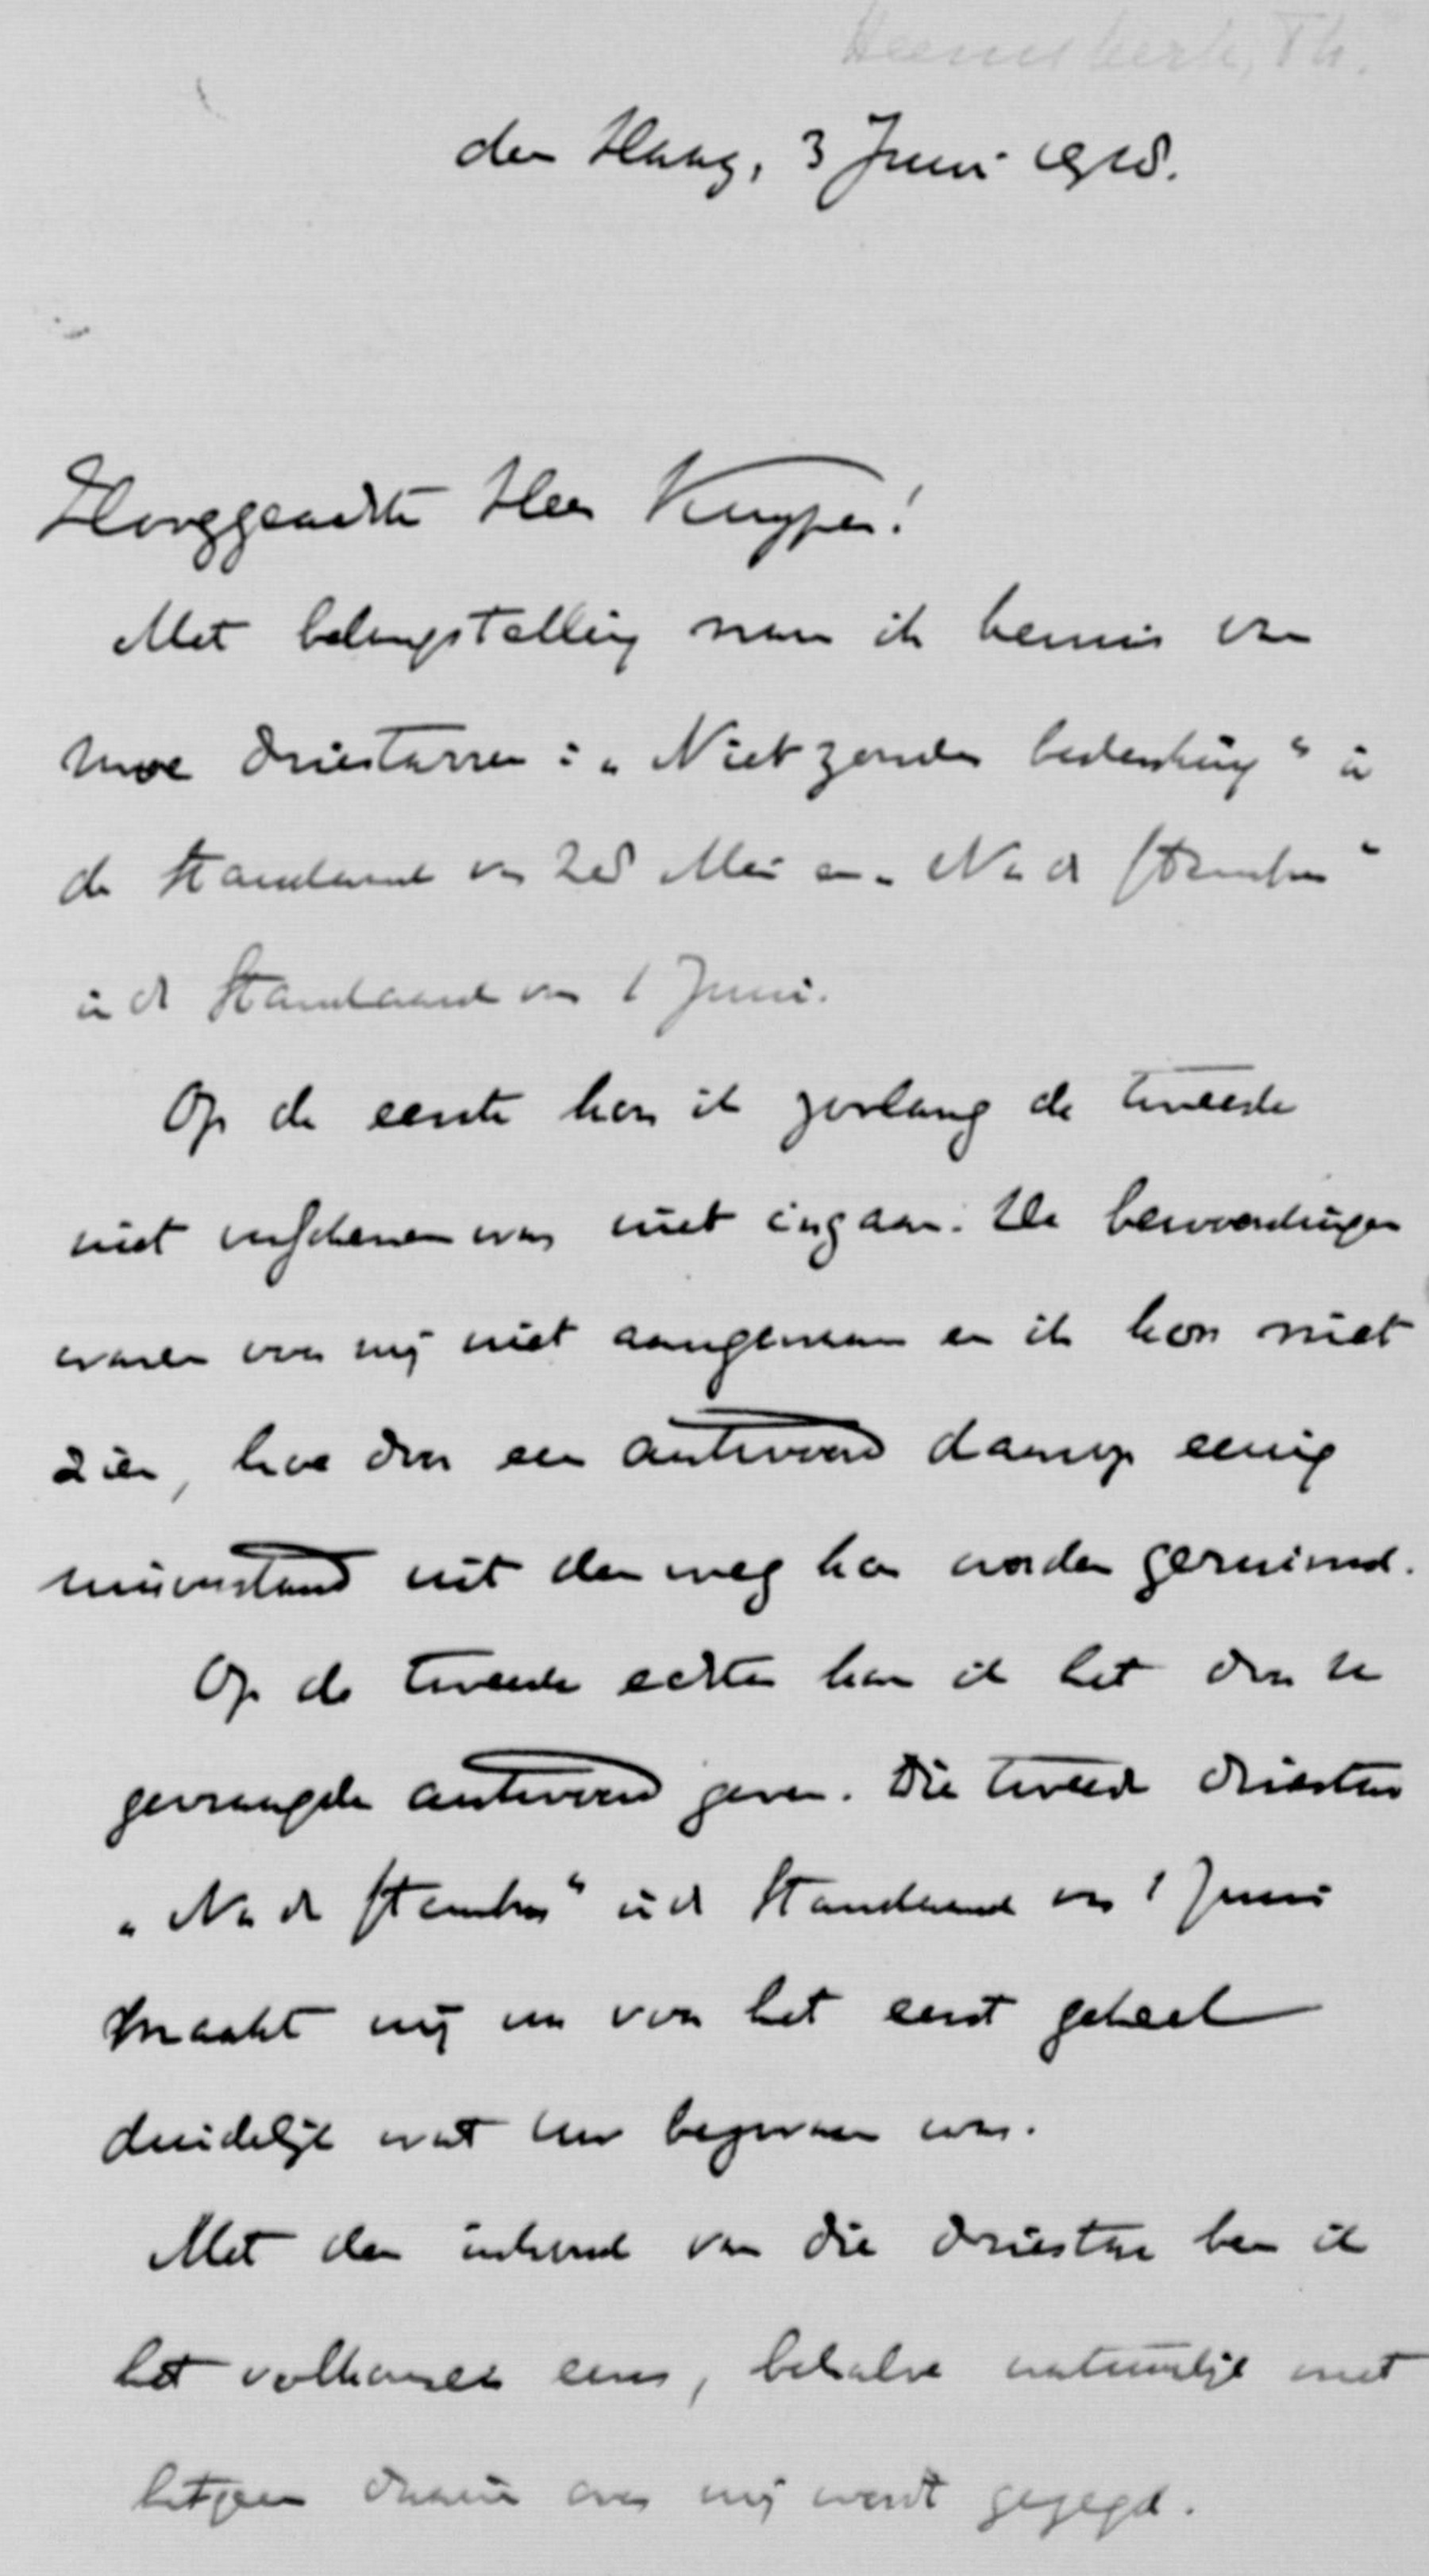 Heemskerk, Th.
den Haag, 3 Juni 1918.
Hooggeachte Heer Kuyper!
Met belangstelling nam ik kennis van
Uwe driestarren: „Niet zonder bedenking" in
de Standaard van 28 Mei en „Na de stembus"
in de Standaard van 1 Juni.
Op de eerste kon ik zoolang de tweede
niet verschenen was niet ingaan. De bewoordingen
waren voor mij niet aangenaam en ik kon niet
zien, hoe door een antwoord daarop eenig
misverstand uit den weg kon worden geruimd.
Op de tweede echter kan ik het door U
gevraagde antwoord geven. Die tweede driestar
„Na de stembus" in de Standaard van 1 Juni
maakt mij nu voor het eerst geheel
duidelijk wat Uw bezwaar was.
Met den inhoud van die driestar ben ik
het volkomen eens, behalve natuurlijk met
hetgeen daarin over mij wordt gezegd.